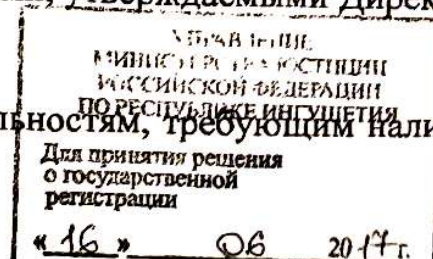 утверждаемыми Дирек
УПРАВЛЕНИЕ
МИНИСТЕРСТВА ЮСТИЦИИ
РОССИЙСКОЙ ФЕДЕРАЦИИ
ПО РЕСПУБЛИКЕ ИНГУШЕТИЯ
льностям, требующим нали
Для принятия решения
о государственной
регистрации
« 16 » 06 2017 г.